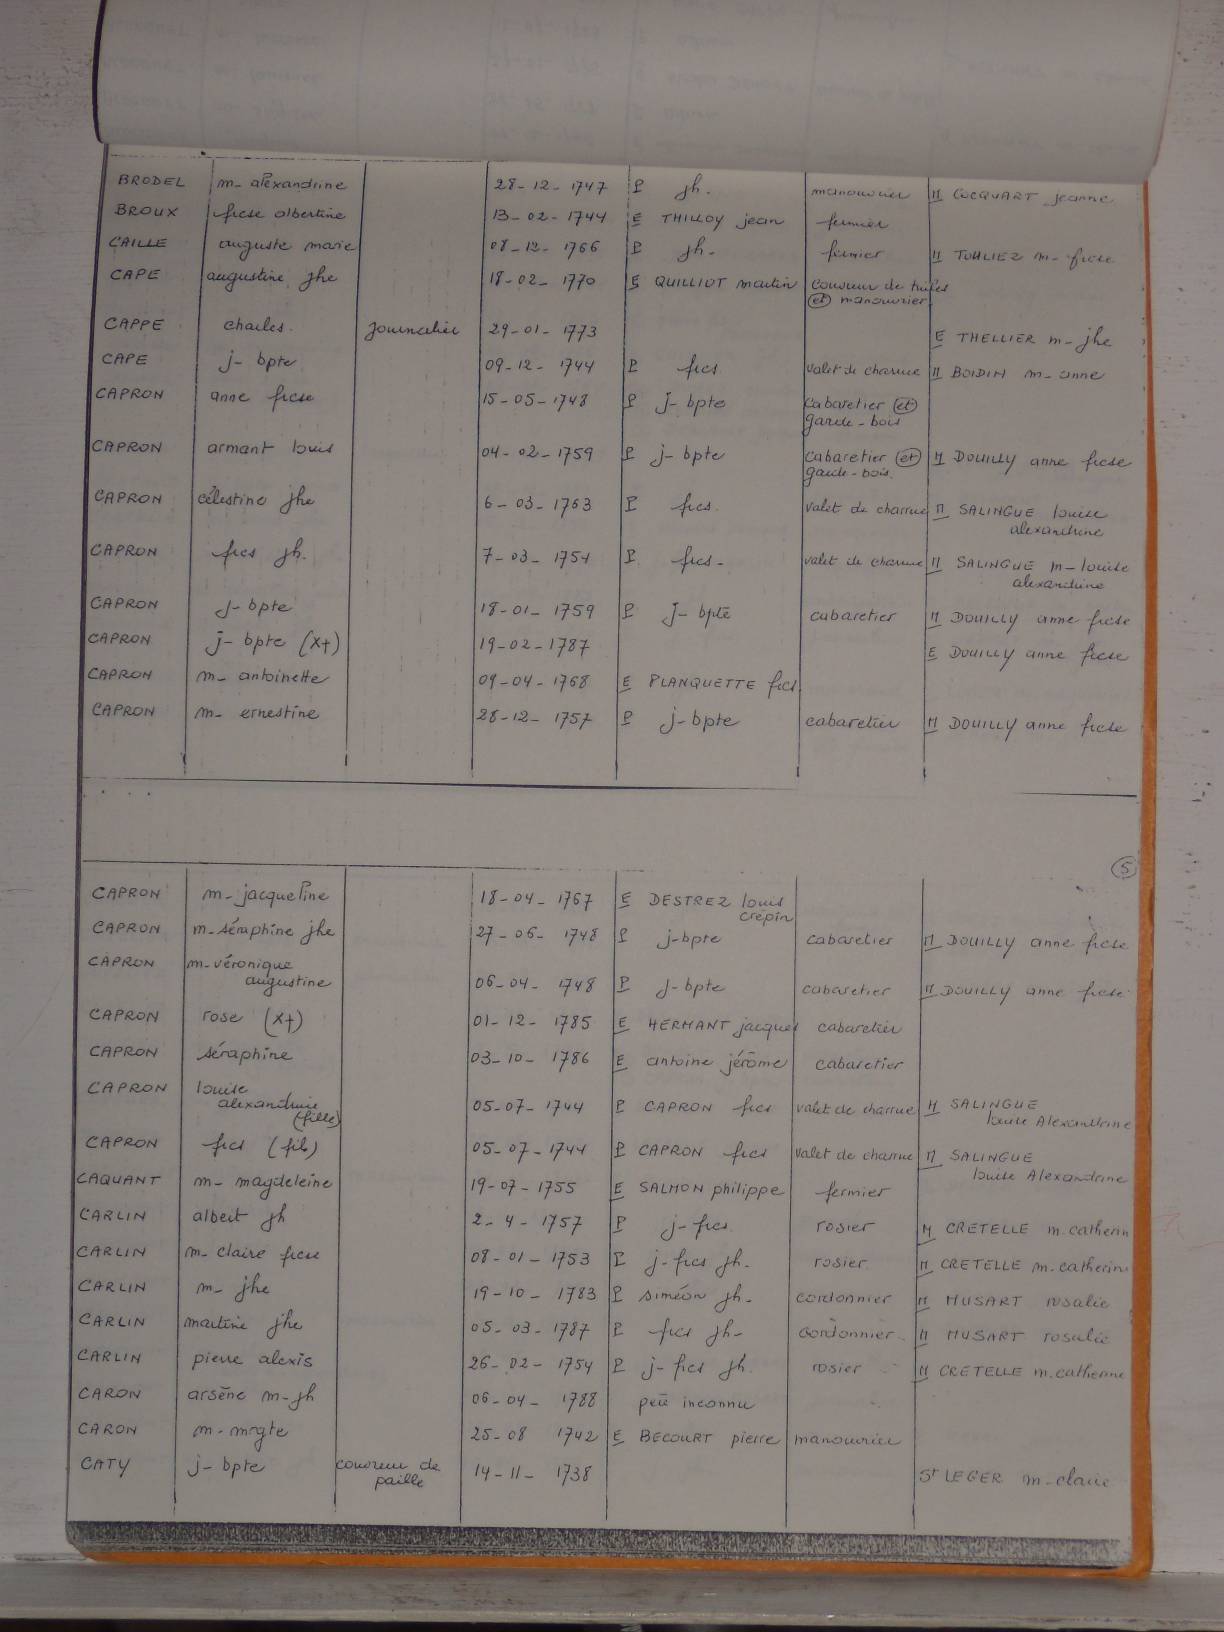 BRODEL m- alexandrine 28-12-1747 P jh. manouvrier M COCQUART jeanne
BROUX fcse albertine 13-02-1744 E THILLOY jean fermier
CAILLE auguste marie 08-12-1766 P jh- fermier M TOULIEZ m- fcse
CAPE augustine jhe 18-02-1770 E QUILLIOT martin couvreur de tuiles
(et) manouvrier
CAPPE charles. journalier 29-01-1773 E THELLIER m-jhe
CAPE j-bpte 09-12-1744 P fcs valet de charrue M BOIDIN m-anne
CAPRON anne fcse 15-05-1748 P j-bpte cabaretier (et)
garde-bois
CAPRON armant louis 04-02-1759 P j-bpte cabaretier (et) M DOUILLY anne fcse
garde-bois.
CAPRON célestine jhe 6-03-1763 P fcs. valet de charrue M SALINGUE louise
alexandrine
CAPRON fcs jh. 7-03-1754 P. fcs- valet de charrue M SALINGUE m-louise
alexandrine
CAPRON j-bpte 18-01-1759 P j-bpte cabaretier M DOUILLY anne fcse
CAPRON j-bpte (x+) 19-02-1787 E DOUILLY anne fcse
CAPRON m- antoinette 09-04-1768 E PLANQUETTE fcs
CAPRON m- ernestine 28-12-1757 P j-bpte cabaretier M DOUILLY anne fcse
5
CAPRON m-jacqueline 18-04-1767 E DESTREZ louis
crépin
CAPRON m-séraphine jhe 27-06-1748 P j-bpte cabaretier M DOUILLY anne fcse
CAPRON m-véronique
augustine 06-04-1748 P j-bpte cabaretier M DOUILLY anne fcse
CAPRON rose (x+) 01-12-1785 E HERMANT jacques cabaretier
CAPRON séraphine 03-10-1786 E antoine jérôme cabaretier
CAPRON louise
alexandrine 05-07-1744 P CAPRON fcs valet de charrue M SALINGUE
(fille) louise Alexandrine
CAPRON fcs (fils) 05-07-1744 P CAPRON fcs valet de charrue M SALINGUE
louise Alexandrine
CAQUANT m- magdeleine 19-07-1755 E SALMON philippe fermier
CARLIN albert jh 2-4-1757 P j-fcs rosier M CRETELLE m.catherin
CARLIN m- claire fcse 08-01-1753 P j-fcs jh. rosier. M CRETELLE m.catherin
CARLIN m- jhe 19-10-1783 P siméon jh. cordonnier M MUSART rosalie
CARLIN martine jhe 05-03-1787 P fcs jh- cordonnier. M MUSART rosalie
CARLIN pierre alexis 26-02-1754 P j-fcs jh. rosier M CRETELLE m.catherine
CARON arsène m-jh 06-04- 1788 père inconnu
CARON m-mrgte 25-08 1742 E BECOURT pierre manouvrier
CATY j-bpte couvreur de 14-11-1738 St LEGER m-claire
paille